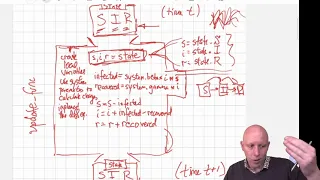 state
(time t)
S I R
s, i, r = state
s = state.S
i = state.I
r = state.R
create
local
variables
use system
to
calculate change
update
infected = system.beta * i * s
recovered = system.gamma * i
s = s - infected
i = i + infected - recovered
r = r + recovered
S I R
update_func
state
S I R
(time t+1)